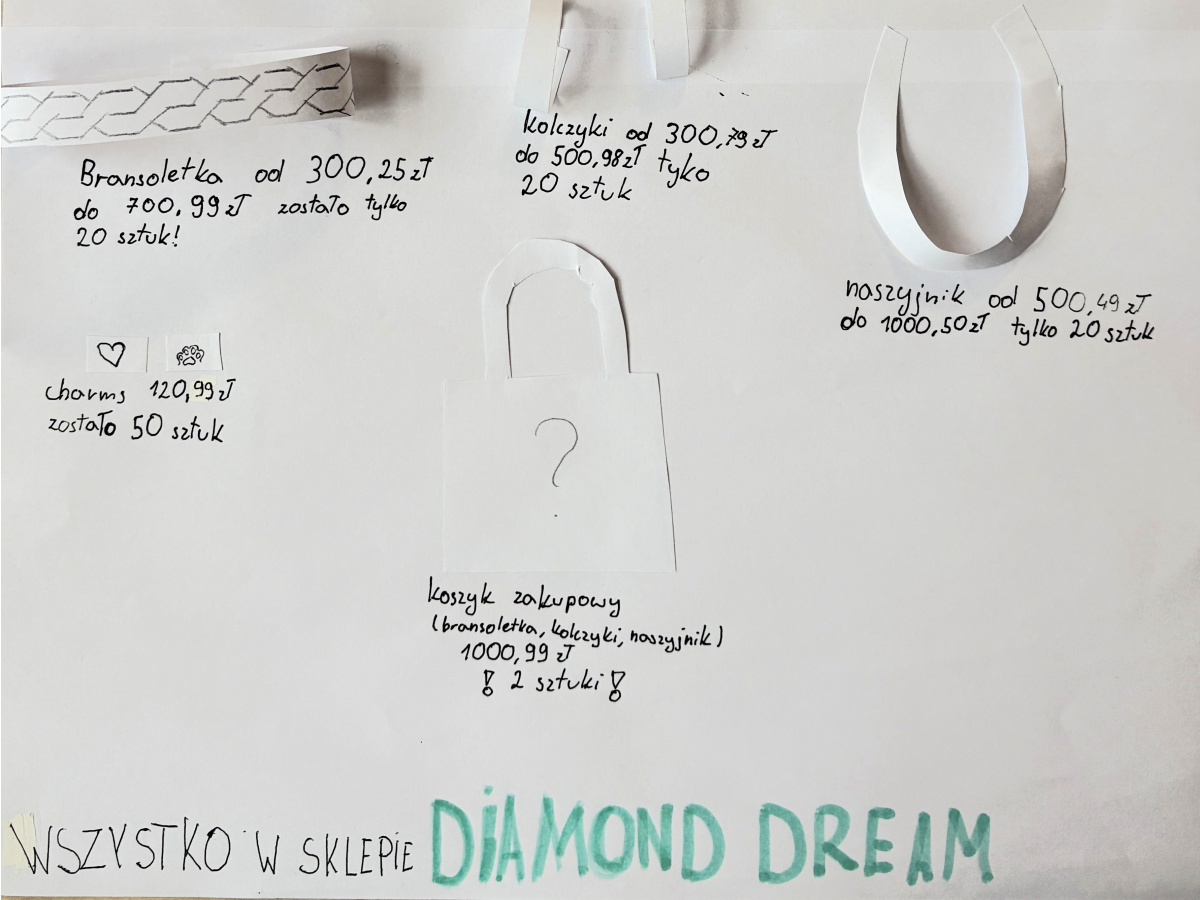 Bransoletka od 300,25 zł
do 700,99 zł zostało tylko
20 sztuk!
kolczyki od 300,79 zł
do 500,98 zł tyko
20 sztuk
naszyjnik od 500,49 zł
do 1000,50 zł tylko 20 sztuk
charms 120,99 zł
zostało 50 sztuk
?
koszyk zakupowy
(bransoletka, kolczyki, naszyjnik)
1000,99 zł
! 2 sztuki !
WSZYSTKO W SKLEPIE DIAMOND DREAM